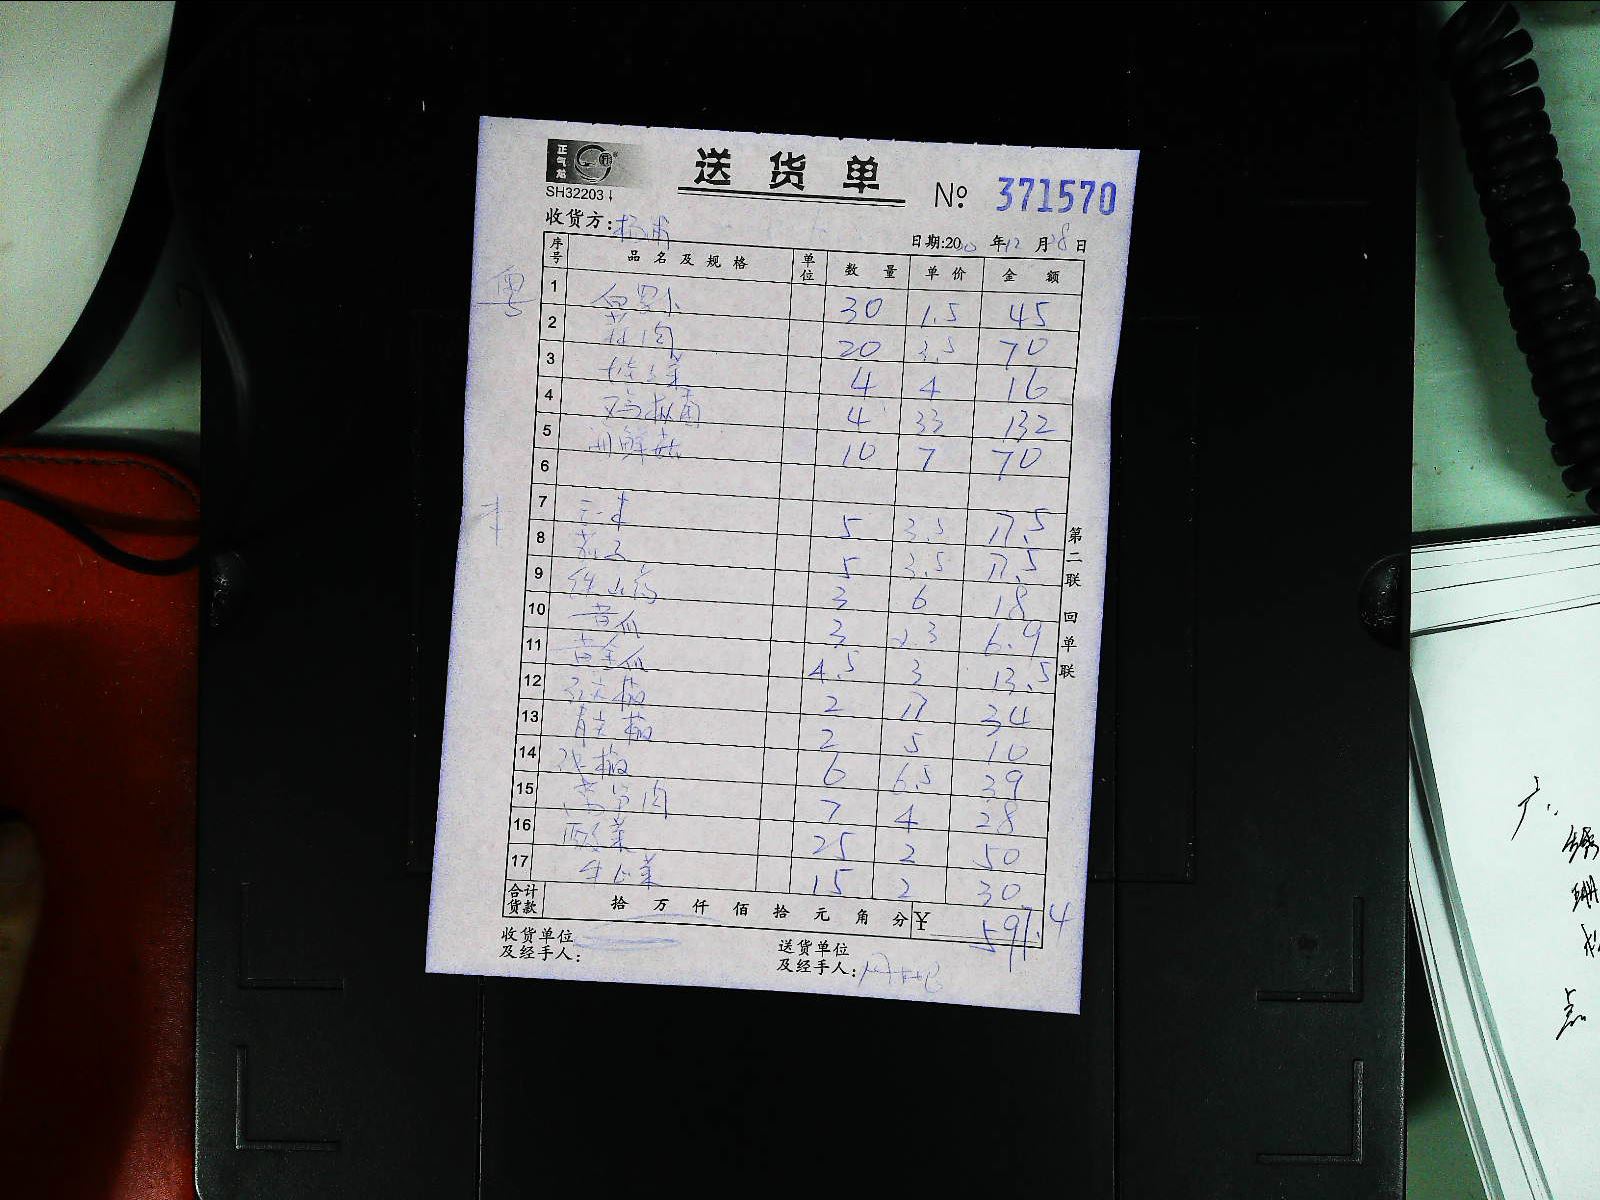 正气龙
送货单
SH32203
No. 371570
收货方: 杨浦
日期:20 年12月28日
序号 品名及规格 单位 数量 单价 金额
1 白罗卜 30 1.5 45
2 20 3.5 70
3 娃娃菜 4 4 16
4 鸡枞菌 4 33 132
5 海鲜菇 10 7 70
6
7 5 3.5 17.5
8 5 3.5 17.5
9 铁山药 3 6 18
10 黄瓜 3 2.3 6.9
11 黄金瓜 4.5 3 13.5
12 2 17 34
13 青尖椒 2 5 10
14 6 6.5 39
15 莴笋肉 7 4 28
16 酸菜 25 2 50
17 生心菜 15 2 30
合计货款 拾万仟佰拾元角分 ¥ 597.4
收货单位及经手人:
送货单位及经手人:
第二联 回单联